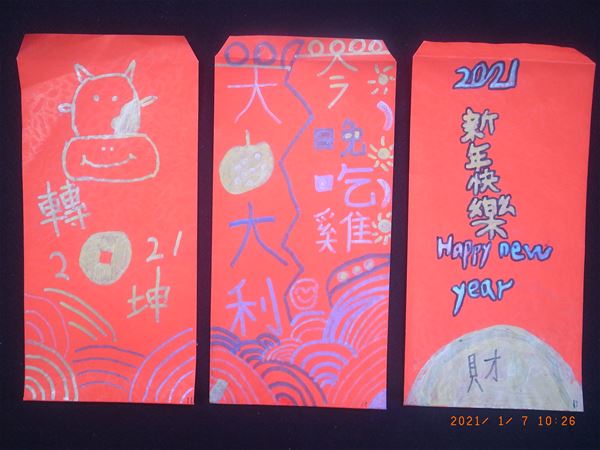 轉
2 21
坤
大
大利
今晚吃雞
2021
新年快樂
Happy new
year
財
2021/ 1/ 7 10:26